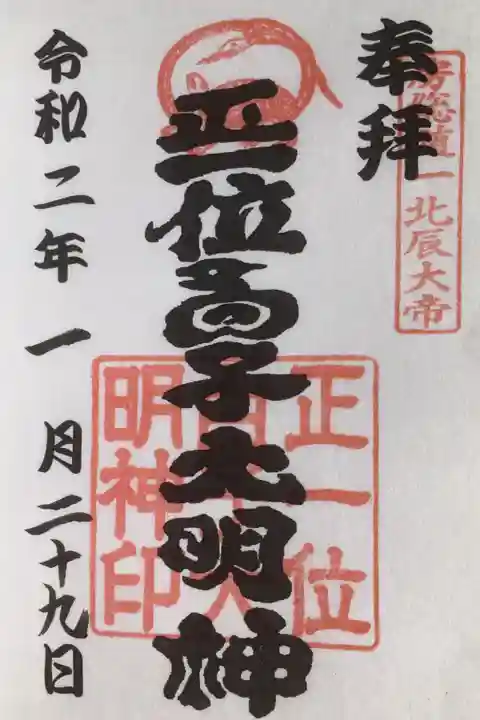 奉拝
房総
一北辰大帝
正一位白子大明神
正一位
明神印
令和二年一月二十九日